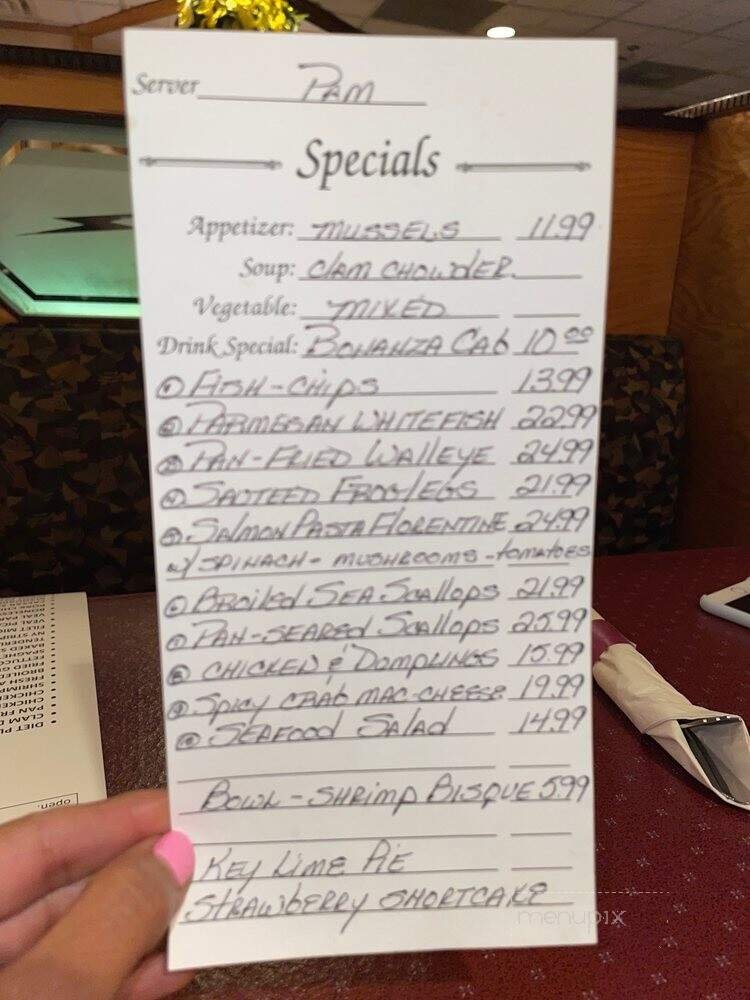 Server Pam
Specials
Appetizer: MUSSELS 11.99
Soup: CLAM CHOWDER
Vegetable: MIXED
Drink Special: BONANZA CAB 10.00
① FISH-CHIPS 13.99
② PARMESAN WHITEFISH 22.99
③ PAN-FRIED WALLEYE 24.99
④ SAOTEED FROGLEGS 21.99
⑤ SALMON PASTA FLORENTINE 24.99
w/ SPINACH - MUSHROOMS - tomatoes
⑥ BROILED SEA SCALLOPS 21.99
⑦ PAN-SEARED SCALLOPS 25.99
⑧ CHICKEN & DOMPLINGS 15.99
⑨ SPICY CRAB MAC-CHEESE 19.99
⑩ SEAFOOD SALAD 14.99
BOWL - SHRIMP BISQUE 5.99
KEY LIME PIE
STRAWBERRY SHORTCAKE
menupix
open.